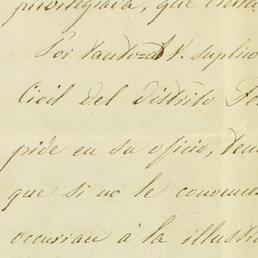 privilegiada, que
Por tanto= a V. suplico
Civil del Distrito
pide en su oficio,
que si no le
ocurrian á la